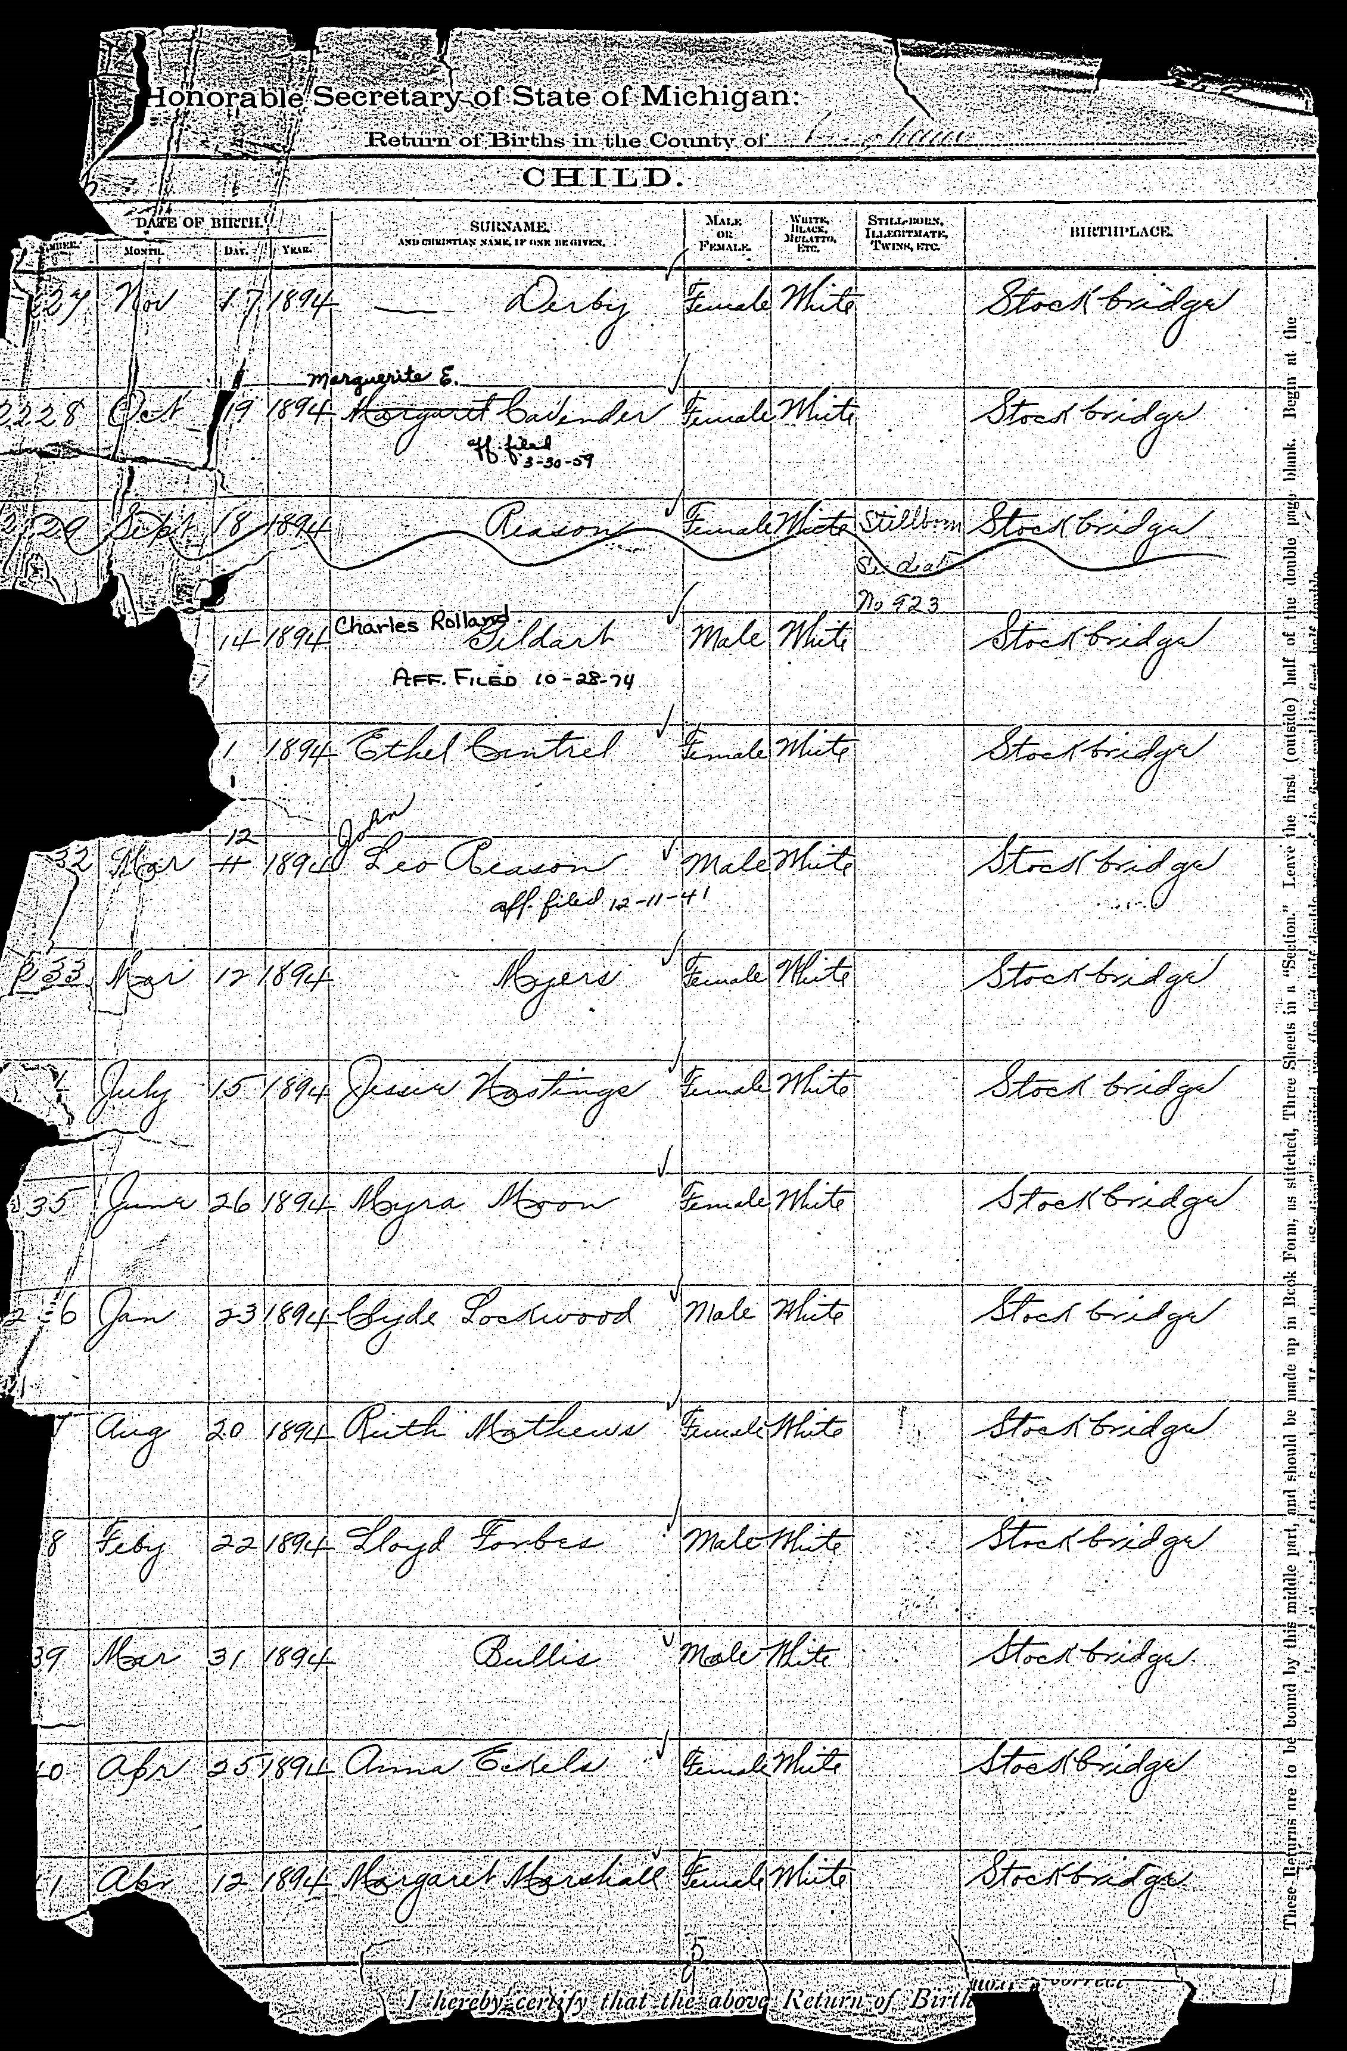 Honorable Secretary of State of Michigan:
Return of Births in the County of Ingham
CHILD.
DATE OF BIRTH. SURNAME, AND CHRISTIAN NAME, IF ONE BE GIVEN. MALE OR FEMALE. WHITE, BLACK, MULATTO, ETC. STILL-BORN, ILLEGITIMATE, TWINS, ETC. BIRTHPLACE.
MONTH. DAY. YEAR.
27 Nov 17 1894 — Derby Female White Stockbridge
Marguerite E.
2228 Oct 19 1894 Margaret Cavender Female White Stockbridge
aff. filed
3-30-59
29 Sept 18 1894 Reason Female White Stillborn Stockbridge
See death
No 923
Charles Rolland
14 1894 Gildart Male White Stockbridge
AFF. FILED 10-28-74
1 1894 Ethel Cantrel Female White Stockbridge
12 John
32 Mar 11 1894 Leo Reason Male White Stockbridge
aff. filed 12-11-41
33 Mar 12 1894 Myers Female White Stockbridge
July 15 1894 Jessie Hastings Female White Stockbridge
35 June 26 1894 Myra Moon Female White Stockbridge
6 Jan 23 1894 Clyde Lockwood Male White Stockbridge
7 Aug 20 1894 Ruth Mathews Female White Stockbridge
8 Feby 22 1894 Lloyd Forbes Male White Stockbridge
39 Mar 31 1894 Bullis Male White Stockbridge
40 Apr 25 1894 Anna Eckels Female White Stockbridge
1 Apr 12 1894 Margaret Marshall Female White Stockbridge
5
9
I hereby certify that the above Return of Birth
correct
These Returns are to be bound by this middle part, and should be made up in Book Form, as stitched, Three Sheets in a "Section." Leave the first (outside) half of the double page blank. Begin at the